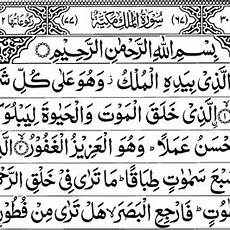 (٦٧) سُوْرَةُ الْمُلْكِ مَكِّيَّةٌ (٧٧)
بِسْمِ اللهِ الرَّحْمٰنِ الرَّحِيْمِ
الَّذِيْ بِيَدِهِ الْمُلْكُ وَهُوَ عَلٰى كُلِّ
الَّذِيْ خَلَقَ الْمَوْتَ وَالْحَيٰوةَ لِيَبْلُوَ
حْسَنُ عَمَلًا وَهُوَ الْعَزِيْزُ الْغَفُوْرُ ۝٢ الَّذِ
سَبْعَ سَمٰوٰتٍ طِبَاقًا مَا تَرٰى فِيْ خَلْقِ الرَّحْمٰ
فَارْجِعِ الْبَصَرَ هَلْ تَرٰى مِنْ فُطُوْرٍ